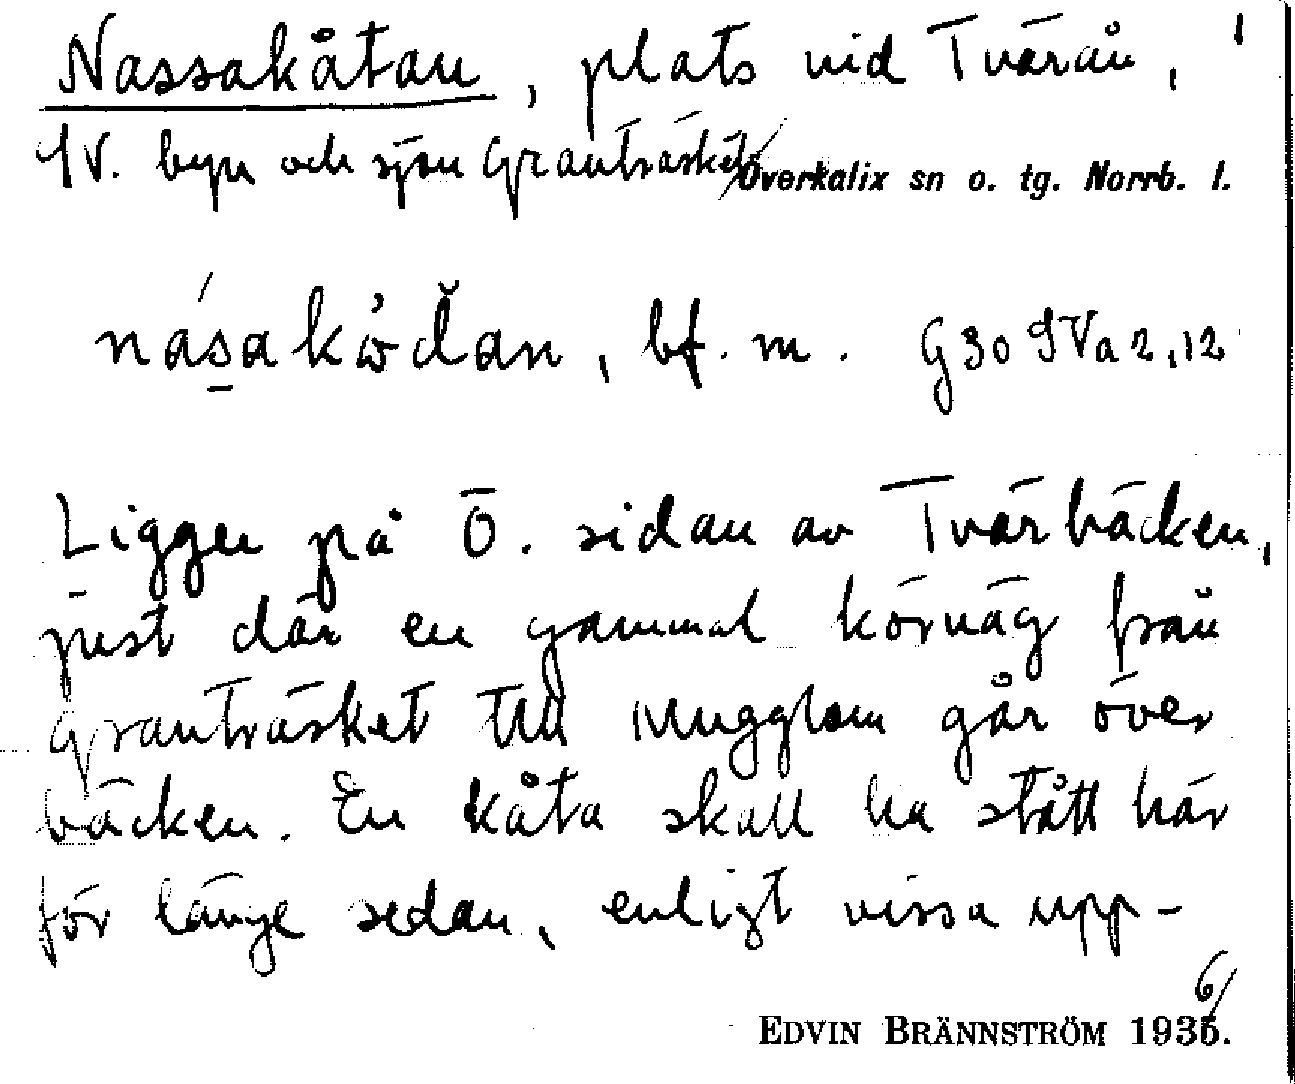 Nassakåtan, plats vid Tvärån, 1
NV. byn och sjön Granträsket, Överkalix sn o. tg. Norrb. l.
bf. m. G 30 IVa 2,12
Ligger på Ö. sidan av Tvärbäcken,
just där en gammal körväg från
Granträsket till Mugglom går över
bäcken. En kåta skall ha stått här
för länge sedan, enligt vissa upp-
6
EDVIN BRÄNNSTRÖM 1935.